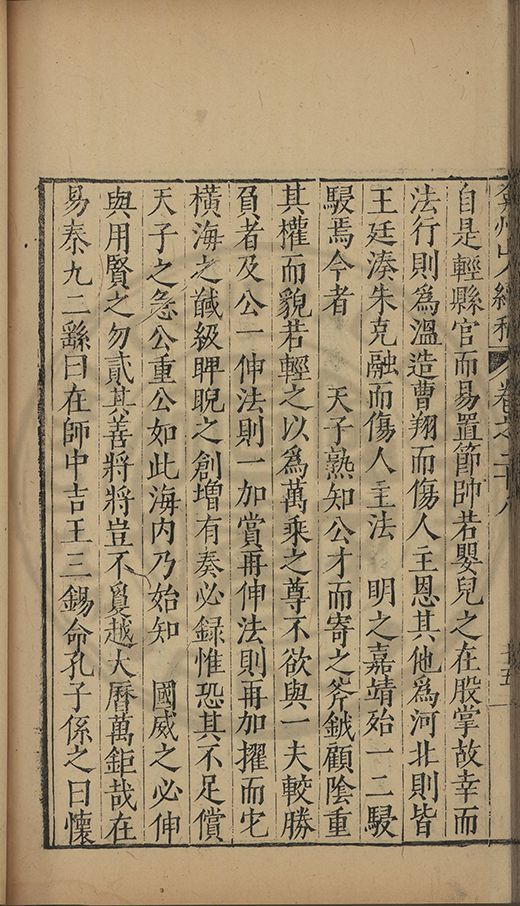 弇州山人續稿 卷之二十八 十五
自是輕縣官而易置節帥若嬰兒之在股掌故幸而
法行則爲溫造曹翔而傷人主恩其他爲河北則皆
王廷湊朱克融而傷人主法 明之嘉靖始一二駸
駸焉今者 天子熟知公才而寄之斧鉞顧陰重
其權而貌若輕之以爲萬乘之尊不欲與一夫較勝
負者及公一伸法則一加賞再伸法則再加擢而它
橫海之馘級睥睨之創增有奏必録惟恐其不足償
天子之急公重公如此海内乃始知 國威之必伸
與用賢之勿貳其善將將豈不敻越大曆萬鉅哉在
易泰九二繇曰在師中吉王三錫命孔子係之曰懷